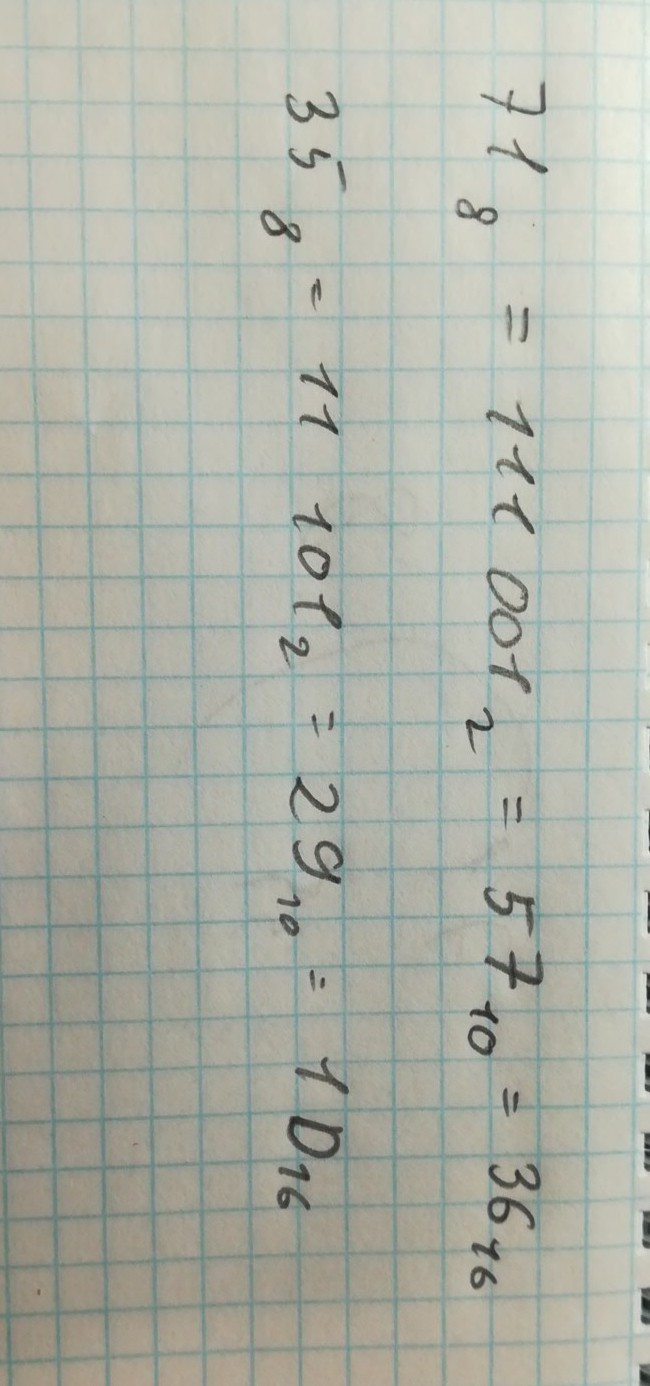 71₈ = 111 001₂ = 57₁₀ = 36₁₆
35₈ = 11 101₂ = 29₁₀ = 1D₁₆